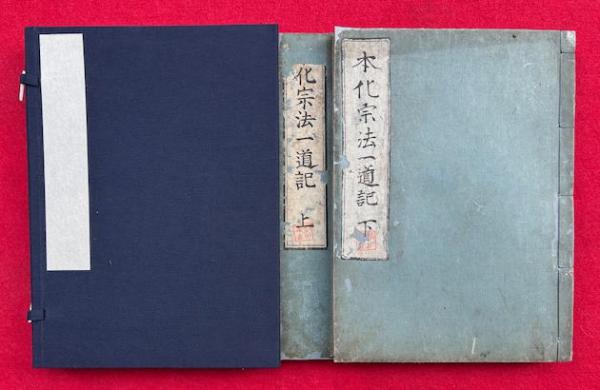 本化宗法一道記 下
化宗法一道記 上